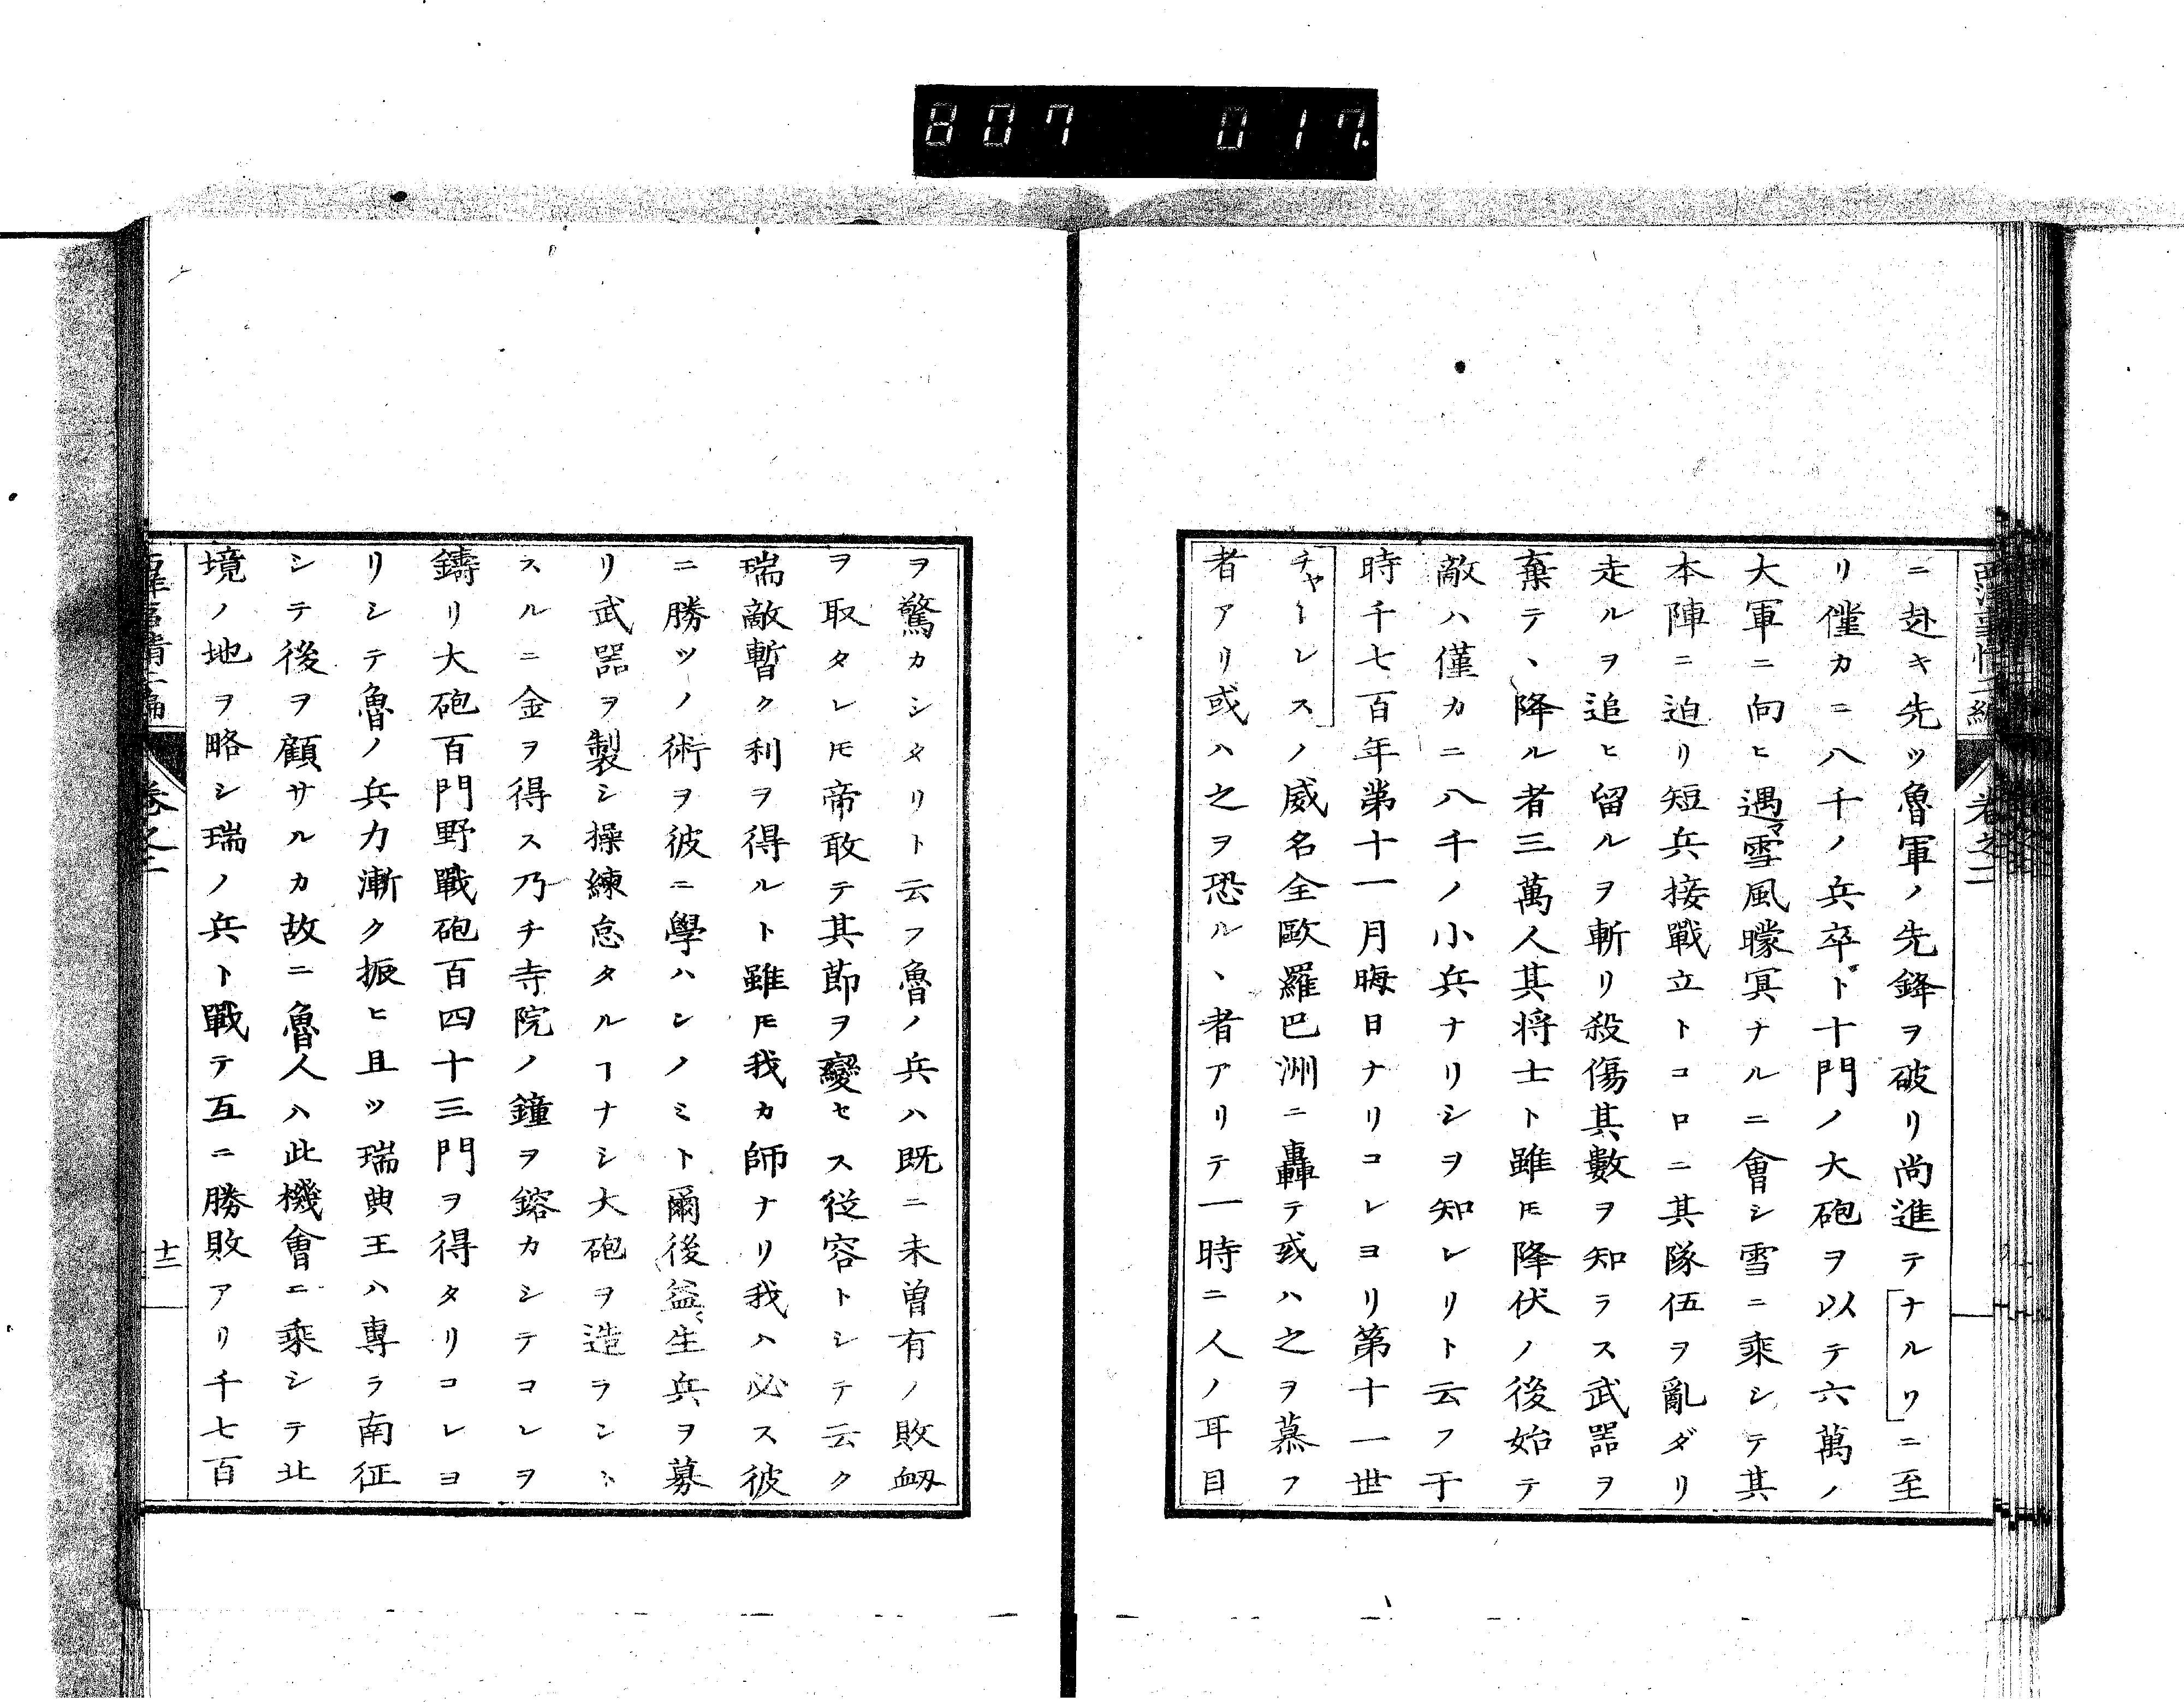 807 017.
西洋事情二編 卷之二
ニ赴キ先ツ魯軍ノ先鋒ヲ破リ尚進テナルワニ至
リ僅カニ八千ノ兵卒ト十門ノ大砲ヲ以テ六萬ノ
大軍ニ向ヒ遇マ雪風曚冥ナルニ會シ雪ニ乘シテ其
本陣ニ迫リ短兵接戰立トコロニ其隊伍ヲ亂ダリ
走ルヲ追ヒ留ルヲ斬リ殺傷其數ヲ知ラス武器ヲ
棄テヽ降ル者三萬人其将士ト雖𪜈降伏ノ後始テ
敵ハ僅カニ八千ノ小兵ナリシヲ知レリト云フ于
時千七百年第十一月晦日ナリコレヨリ第十一世
チャーレスノ威名全歐羅巴洲ニ轟テ或ハ之ヲ慕フ
者アリ或ハ之ヲ恐ルヽ者アリテ一時ニ人ノ耳目
ヲ驚カシタリト云フ魯ノ兵ハ既ニ未曽有ノ敗衂
ヲ取タレ𪜈帝敢テ其節ヲ變セス従容トシテ云ク
瑞敵暫ク利ヲ得ルト雖𪜈我カ師ナリ我ハ必ス彼
ニ勝ツノ術ヲ彼ニ學ハンノミト爾後益〻生兵ヲ募
リ武器ヲ製シ操練怠タルヿナシ大砲ヲ造ラント
スルニ金ヲ得ス乃チ寺院ノ鐘ヲ鎔カシテコレヲ
鑄リ大砲百門野戰砲百四十三門ヲ得タリコレヨ
リシテ魯ノ兵力漸ク振ヒ且ツ瑞典王ハ專ラ南征
シテ後ヲ顧サルカ故ニ魯人ハ此機會ニ乘シテ北
境ノ地ヲ略シ瑞ノ兵ト戰テ互ニ勝敗アリ千七百
西洋事情二編 卷之二 十二